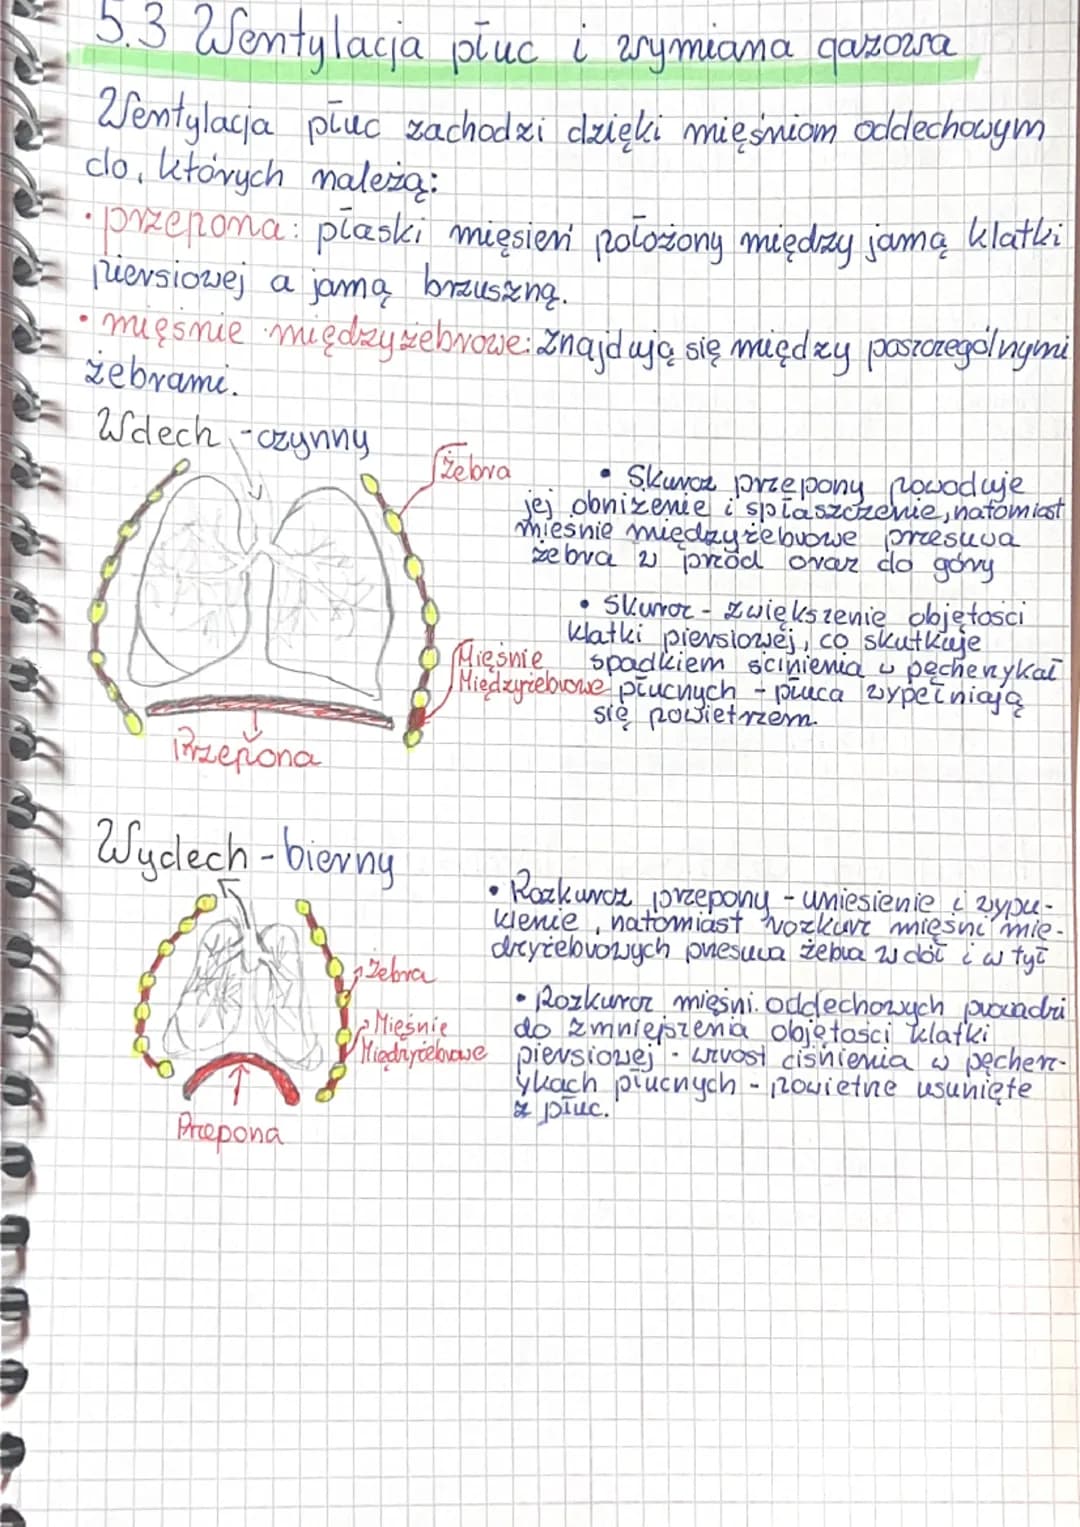 5.3 Wentylacja płuc i wymiana gazowa
Wentylacja płuc zachodzi dzięki mięśniom oddechowym
do, których należą:
• przepona: płaski mięsień położony między jamą klatki
piersiowej a jamą brzuszną.
• mięśnie międzyżebrowe: znajdują się między poszczególnymi
żebrami.
Wdech - czynny
żebra
• Skurcz przepony powoduje
jej obniżenie i spłaszczenie, natomiast
mieśnie międzyżebrowe przesuwa
żebra w przód oraz do góry
• Skurcz - zwiększenie objętości
klatki piersiowej, co skutkuje
spadkiem ciśnienia w pęcherzykał
płucnych - płuca wypełniają
się powietrzem.
Mięśnie
Międzyżebrowe
Przepona
Wydech - bierny
• Rozkurcz przepony - uniesienie i wypu-
klenie, natomiast rozkurc mięśni mię-
dzyżebrowych przesuwa żebra w dół i w tył
żebra
Mięśnie
Międzyżebrowe
• Rozkurcz mięśni oddechowych prowadzi
do zmniejszenia objętości klatki
piersiowej - wzrost ciśnienia w pęcherz-
ykach płucnych - powietrze usunięte
z płuc.
Przepona